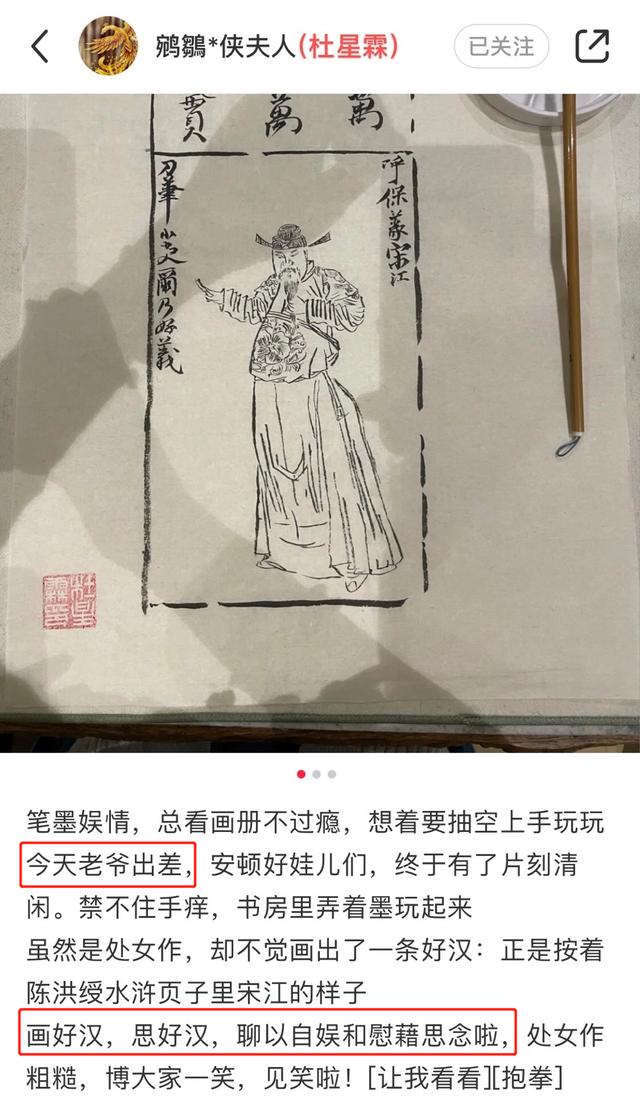 鹓鶵*侠夫人(杜星霖)
已关注
萬
萬
貫
呼保義宋江
刀筆小吏爾乃好義
杜星
霖印
笔墨娱情，总看画册不过瘾，想着要抽空上手玩玩
今天老爷出差，安顿好娃儿们，终于有了片刻清
闲。禁不住手痒，书房里弄着墨玩起来
虽然是处女作，却不觉画出了一条好汉：正是按着
陈洪绶水浒页子里宋江的样子
画好汉，思好汉，聊以自娱和慰藉思念啦，处女作
粗糙，博大家一笑，见笑啦！[让我看看][抱拳]